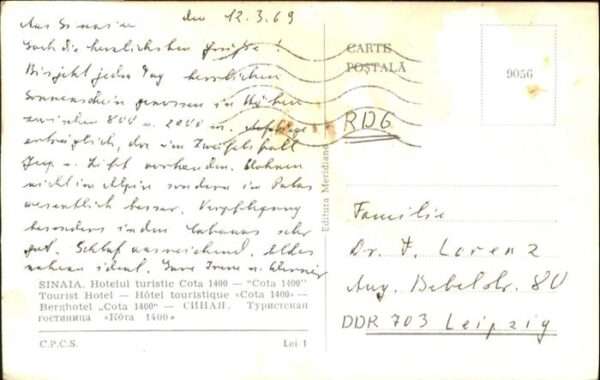 Aus Sinaia den 12.3.69
Euch die herzlichsten Grüße!
Bis jetzt jeden Tag herrlichen
Sonnenschein genossen in Höhen
zwischen 800 u. 2000 m. Aufstiege
erträglich, da im Zweifelsfall
Jeep u. Lift vorhanden. Wohnen
nicht im Alpin sondern im Palas
wesentlich besser. Verpflegung
besonders in den Cabanas sehr
gut. Schlaf ausreichend. Alles
nahezu ideal. Eure Irene u. Werner
SINAIA. Hotelul turistic Cota 1400 — "Cota 1400"
Tourist Hotel — Hôtel touristique «Cota 1400» —
Berghotel „Cota 1400" — СИНАЯ. Туристская
гостиница «Кота 1400»
C.P.C.S. Lei 1
Editura Meridiane
CARTE
POŞTALĂ
9056
RDG
Familie
Dr. F. Lorenz
Aug. Bebelstr. 80
DDR 703 Leipzig